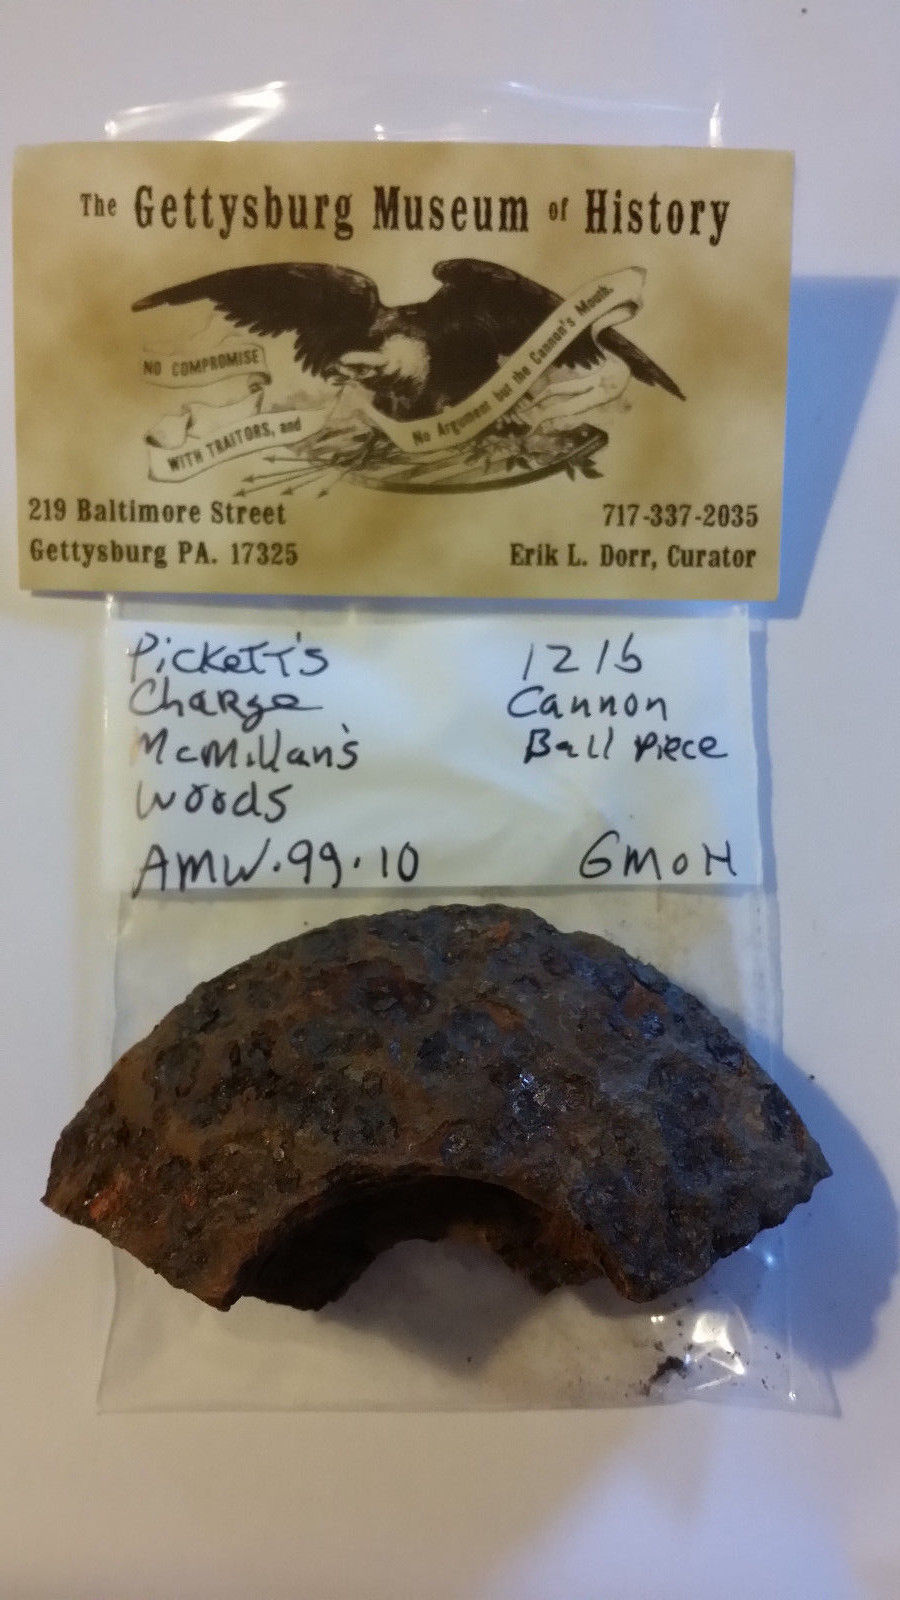 The Gettysburg Museum of History
NO COMPROMISE
WITH TRAITORS, and
No Argument but the Cannon's Mouth.
219 Baltimore Street
Gettysburg PA. 17325
717-337-2035
Erik L. Dorr, Curator
Pickett's
Charge
McMillan's
Woods
AMW.99.10
12 lb
Cannon
Ball Piece
GMOH